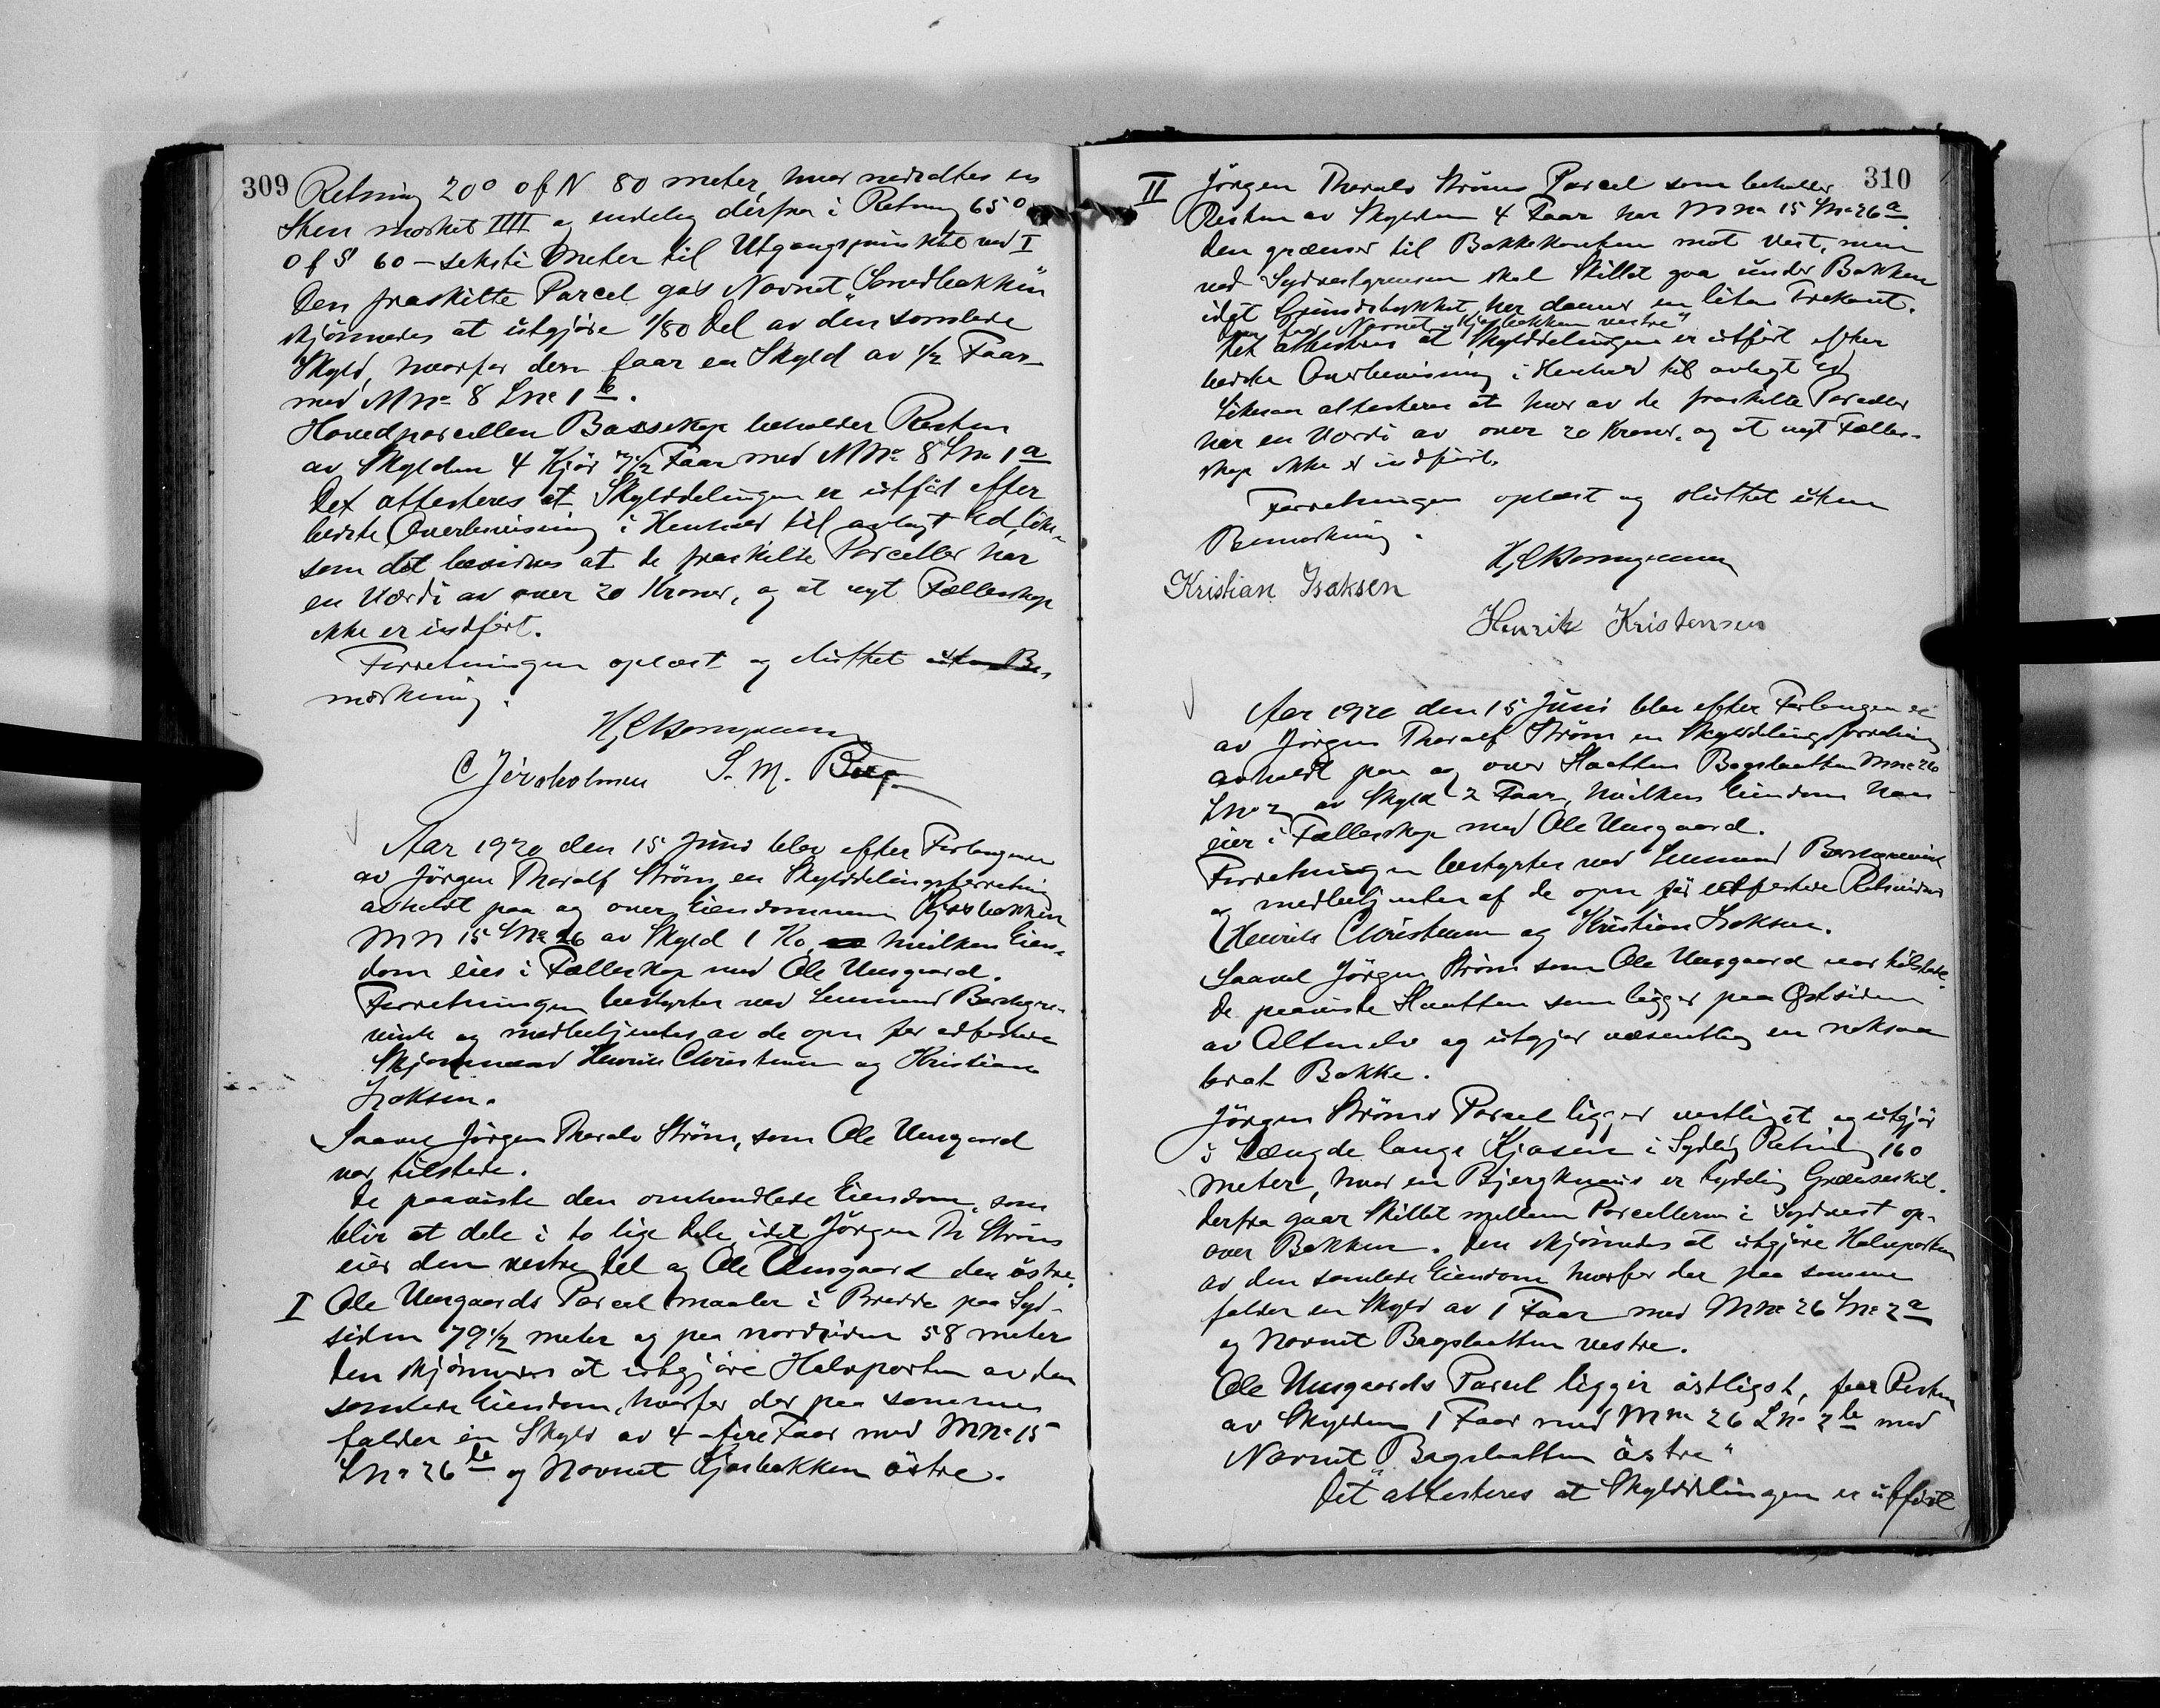 309
Retning 20° ofN 80 meter, hvor nedsattes en
Sten mærket IIII og endelig derfra i Retning 65°
ofS 60 – seksti Meter til Utgangspunktet ved I
Den fraskilte Parcel gas Navnet „Sandbakken"
skjönnedes at utgjöre 1/80 Del av den samlede
Skyld, hvorfor den faar en Skyld av 1/2 Faar
med Mno 8 Lno 1 b.
Hovedparcellen Bassekop beholder Resten
av Skylden 4 Kjör 7 1/2 Faar med M No 8 Lno 1 a
Det attesteres at Skylddelingen er utfört efter
bedste Overbevisning i Henhold til avlagt Ed, like-
som det bevidnes at de fraskilte Parceller har
en Værdi av over 20 Kroner, og at nyt Fællesskap
ikke er indfört.
Forretningen oplæst og sluttet uten Be-
mærkning.
C Jersholmen S. M. Berg
Aar 1920 den 15 Juni blev efter Forlangende
av Jörgen Thoralf Ström en Skylddelingsforretning
avholdt paa og over Eiendommen Kjosbakken
MN 15 Lno 26 av Skyld 1 Ko, hvilken Eien-
dom eies i Fælleskap med Ole Uusgaard.
Forretningen bestyrtes ved Lensmand Bærsgre-
vink og medbetjentes av de opn för edfæstede
Skjönmænd Henrik Christensen og Kristian
Isaksen.
Saavel Jörgen Thoralv Ström, som Ole Uusgaard
var tilstede.
De paaviste den omhandlede Eiendom, som
blir at dele i to lige Dele, idet Jörgen Th Ström
eier den vestre Del og Ole Uusgaard den östre.
I Ole Uusgaards Parcel maaler i Bredde paa Syd-
siden 79 1/2 meter og paa nordsiden 58 meter
Den skjönnedes at utgjöre Halvparten av den
samlede Eiendom, hvorfor der paa samme
falder en Skyld av 4 – fire Faar med MNo 15
LNo 26 b og Navnet Kjosbakken östre.
310
II Jörgen Thoralv Ströms Parcel som beholder
Resten av Skylden 4 Faar har MNo 15 Lno 26 a.
Den grænser til Bakkekanten mot vest, men
ved Sydvestgrensen skal Skillet gaa under Bakken
idet Grundstykket her danner en liten Trekant.
Navnet „Kjosbakken vestre"
Det attesteres at Skylddelingen er utfört efter
bedste Overbevisning i Henhold til avlagt Ed
Likesaa attesteres at hver av de fraskilte Parceller
har en Værdi av over 20 Kroner, og at nyt Fælles-
skap ikke er indfört.
Forretningen oplæst og sluttet uten
Bemærkning.
Kristian Isaksen
Henrik Kristensen
Aar 1920 den 15 Juni blev efter Forlangende
av Jörgen Thoralf Ström en Skylddelingsforretning
avholdt paa og over Slaatten Bagslaatten Mno 26
Lno 2 av Skyld 2 Faar, hvilken Eiendom han
eier i Fælleskap med Ole Uusgaard.
Forretningen bestyrtes ved Lensmand Bærsgrevink
og medbetjentes af de opn för edfæstede Retsvidner
Henrik Christensen og Kristian Isaksen.
Saavel Jörgen Ström som Ole Uusgaard var tilstede.
De paaviste Slaatten som ligger paa Østsiden
av Altenelv og utgjör væsentlig en noksaa
brat Bakke.
Jörgen Ströms Parcel ligger vestligst og utgjör
i Længde langs Kjosen i Sydlig Retning 160
meter, hvor en Bjergknaus er tydelig Grænseskil.
Derfra gaar Skillet mellem Parcellerne i Sydvest op-
over Bakken. Den skjönnedes at utgjöre Halvparten
av den samlede Eiendom hvorfor der paa samme
falder en Skyld av 1 Faar med MNo 26 Lno 2 a
og Navnet Bagslaatten vestre.
Ole Uusgaards Parcel ligger östligst, faar Resten
av Skylden 1 Faar med Mno 26 Lno 2 b med
Navnet „Bagslaatten östre"
Det attesteres at Skylddelingen er utfört